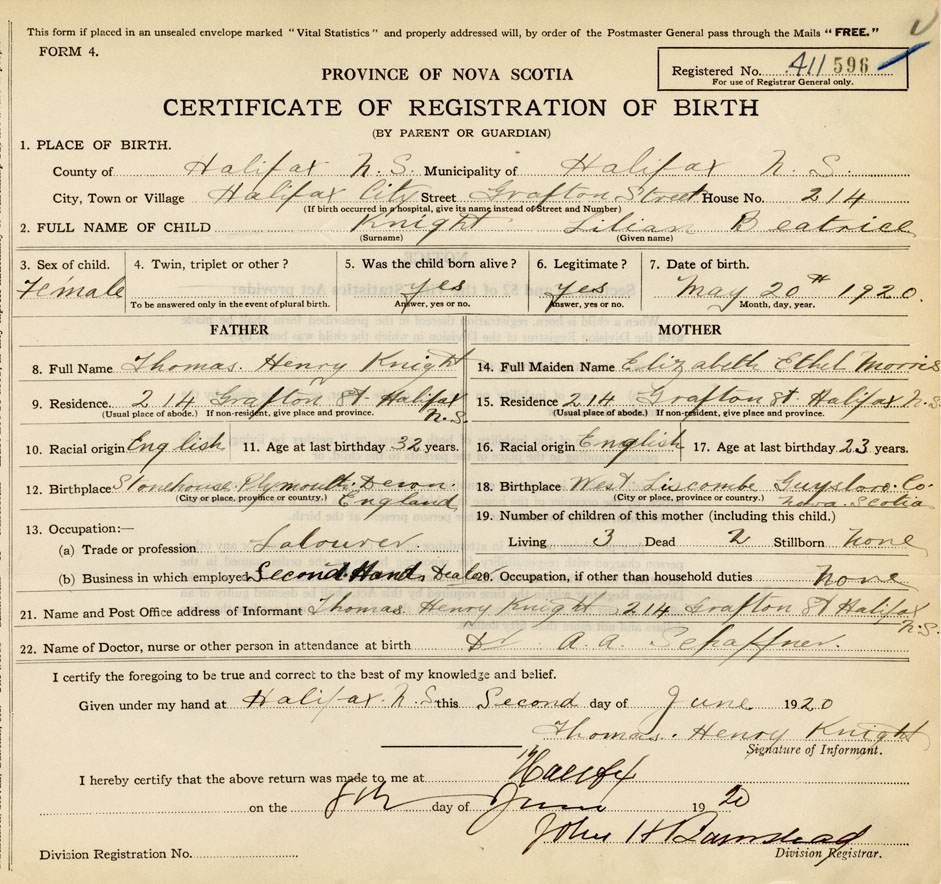 This form if placed in an unsealed envelope marked "Vital Statistics" and properly addressed will, by order of the Postmaster General pass through the Mails "FREE."
FORM 4.
Registered No. 411 596
For use of Registrar General only.
PROVINCE OF NOVA SCOTIA
CERTIFICATE OF REGISTRATION OF BIRTH
(BY PARENT OR GUARDIAN)
1. PLACE OF BIRTH.
County of Halifax N.S. Municipality of Halifax N.S.
City, Town or Village Halifax City Street Grafton Street House No. 214
(If birth occurred in a hospital, give its name instead of Street and Number)
2. FULL NAME OF CHILD Knight Lilian Beatrice
(Surname) (Given name)
3. Sex of child. 4. Twin, triplet or other? 5. Was the child born alive? 6. Legitimate? 7. Date of birth.
Female yes yes May 20th 1920.
To be answered only in the event of plural birth. Answer, yes or no. Answer, yes or no. Month, day, year.
FATHER MOTHER
8. Full Name Thomas. Henry Knight 14. Full Maiden Name Elizabeth Ethel Morris
9. Residence. 214 Grafton St Halifax N.S. 15. Residence 214 Grafton St Halifax N.S.
(Usual place of abode.) If non-resident, give place and province. (Usual place of abode.) If non-resident, give place and province.
10. Racial origin English 11. Age at last birthday 32 years. 16. Racial origin English 17. Age at last birthday 23 years.
12. Birthplace Stonehouse. Plymouth. Devon. England 18. Birthplace West Liscombe Guysboro. Co. Nova Scotia
(City or place, province or country.) (City or place, province or country.)
13. Occupation:— 19. Number of children of this mother (including this child.)
(a) Trade or profession Labourer Living 3 Dead 2 Stillborn None
(b) Business in which employed Second Hand Dealer 20. Occupation, if other than household duties None
21. Name and Post Office address of Informant Thomas. Henry Knight 214 Grafton St Halifax N.S.
22. Name of Doctor, nurse or other person in attendance at birth Dr A.A. Schaffner.
I certify the foregoing to be true and correct to the best of my knowledge and belief.
Given under my hand at Halifax N.S. this Second day of June 1920
Thomas. Henry Knight
Signature of Informant.
I hereby certify that the above return was made to me at Halifax
on the 8th day of June 1920
John H Barnstead
Division Registration No. Division Registrar.